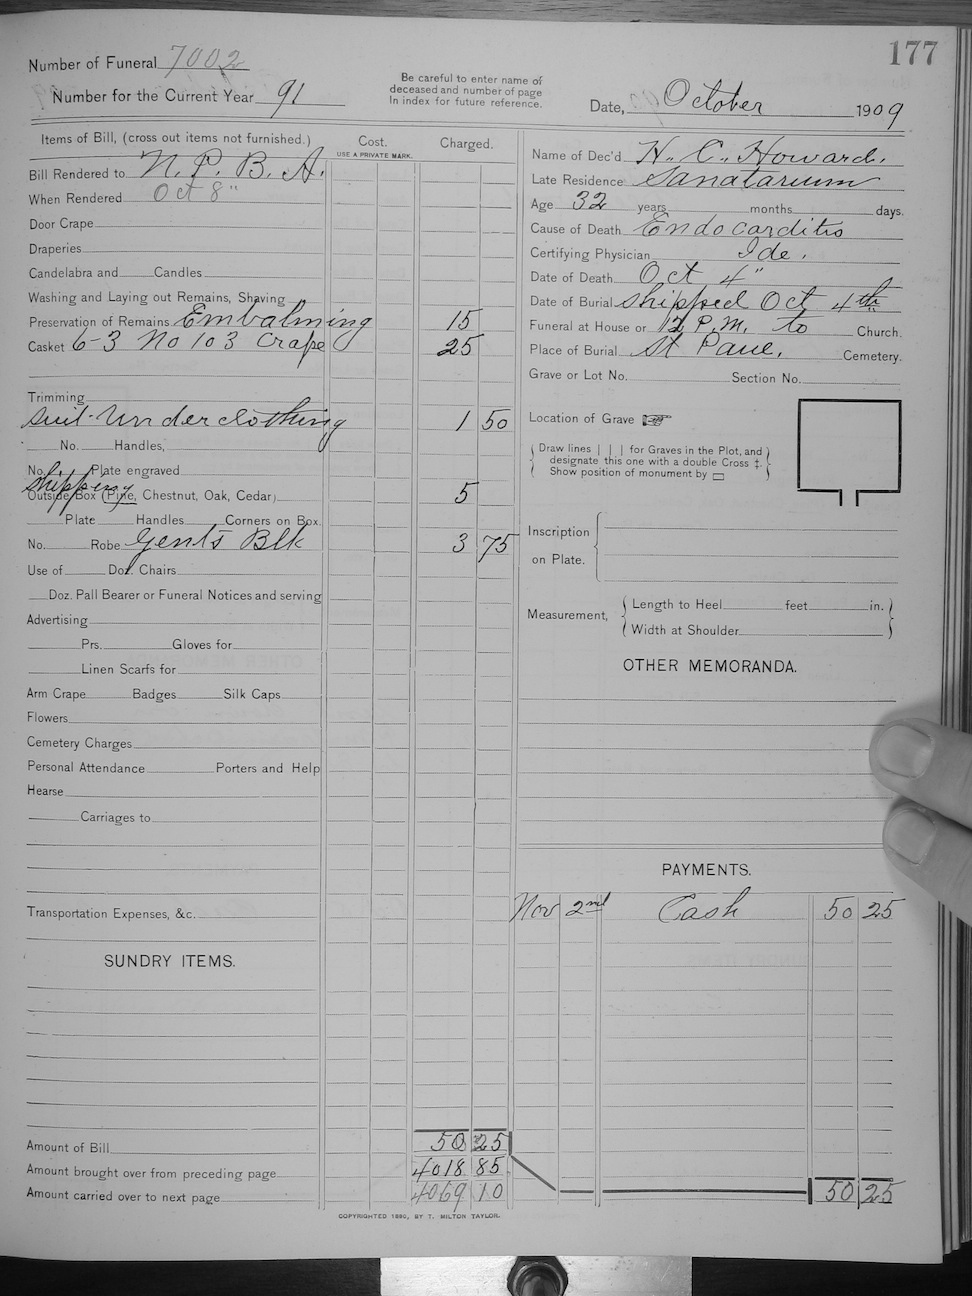 177
Number of Funeral 7002
Number for the Current Year 91
Be careful to enter name of
deceased and number of page
in index for future reference.
Date, October 1909
Items of Bill, (cross out items not furnished.) Cost. Charged.
USE A PRIVATE MARK.
Bill Rendered to N. P. B. A.
When Rendered Oct 8"
Door Crape
Draperies
Candelabra and Candles
Washing and Laying out Remains, Shaving
Preservation of Remains Embalming 15
Casket 6-3 No 103 Crape 25
Trimming
Suit-Underclothing 1 50
No. Handles,
No. Plate engraved
Shipping
Outside Box (Pine, Chestnut, Oak, Cedar) 5
Plate Handles Corners on Box.
No. Robe Gents Blk 3 75
Use of Doz. Chairs
Doz. Pall Bearer or Funeral Notices and serving
Advertising
Prs. Gloves for
Linen Scarfs for
Arm Crape Badges Silk Caps
Flowers
Cemetery Charges
Personal Attendance Porters and Help
Hearse
Carriages to
Transportation Expenses, &c.
SUNDRY ITEMS.
Amount of Bill 50 25
Amount brought over from preceding page 4018 85
Amount carried over to next page 4069 10
Name of Dec'd H. C. Howard.
Late Residence Sanatarium
Age 32 years months days.
Cause of Death Endocarditis
Certifying Physician Ide.
Date of Death Oct 4"
Date of Burial shipped Oct 4th
Funeral at House or 12 P.M. to Church.
Place of Burial St Paul. Cemetery.
Grave or Lot No. Section No.
Location of Grave
Draw lines | | | for Graves in the Plot, and
designate this one with a double Cross ‡.
Show position of monument by
Inscription
on Plate.
Measurement, Length to Heel feet in.
Width at Shoulder
OTHER MEMORANDA.
PAYMENTS.
Nov 2nd Cash 50 25
50 25
COPYRIGHTED 1880, BY T. MILTON TAYLOR.